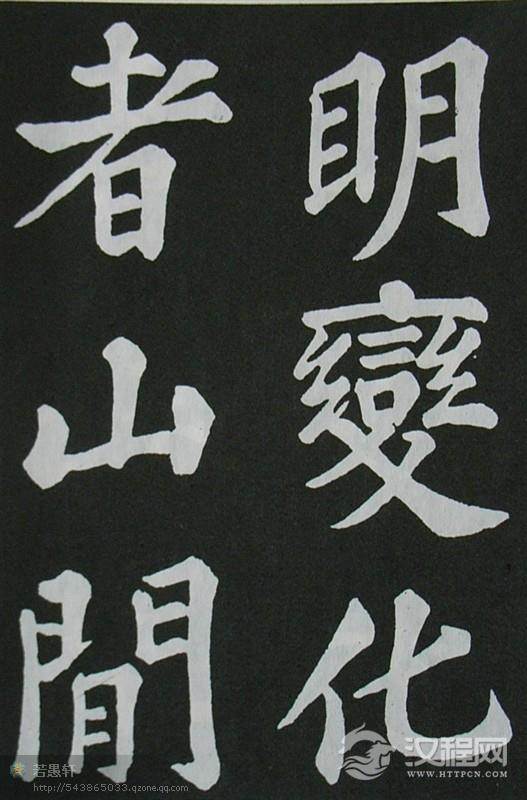 明變化
者山間
若愚轩
http://543865033.qzone.qq.com
汉程网
www.httpcn.com